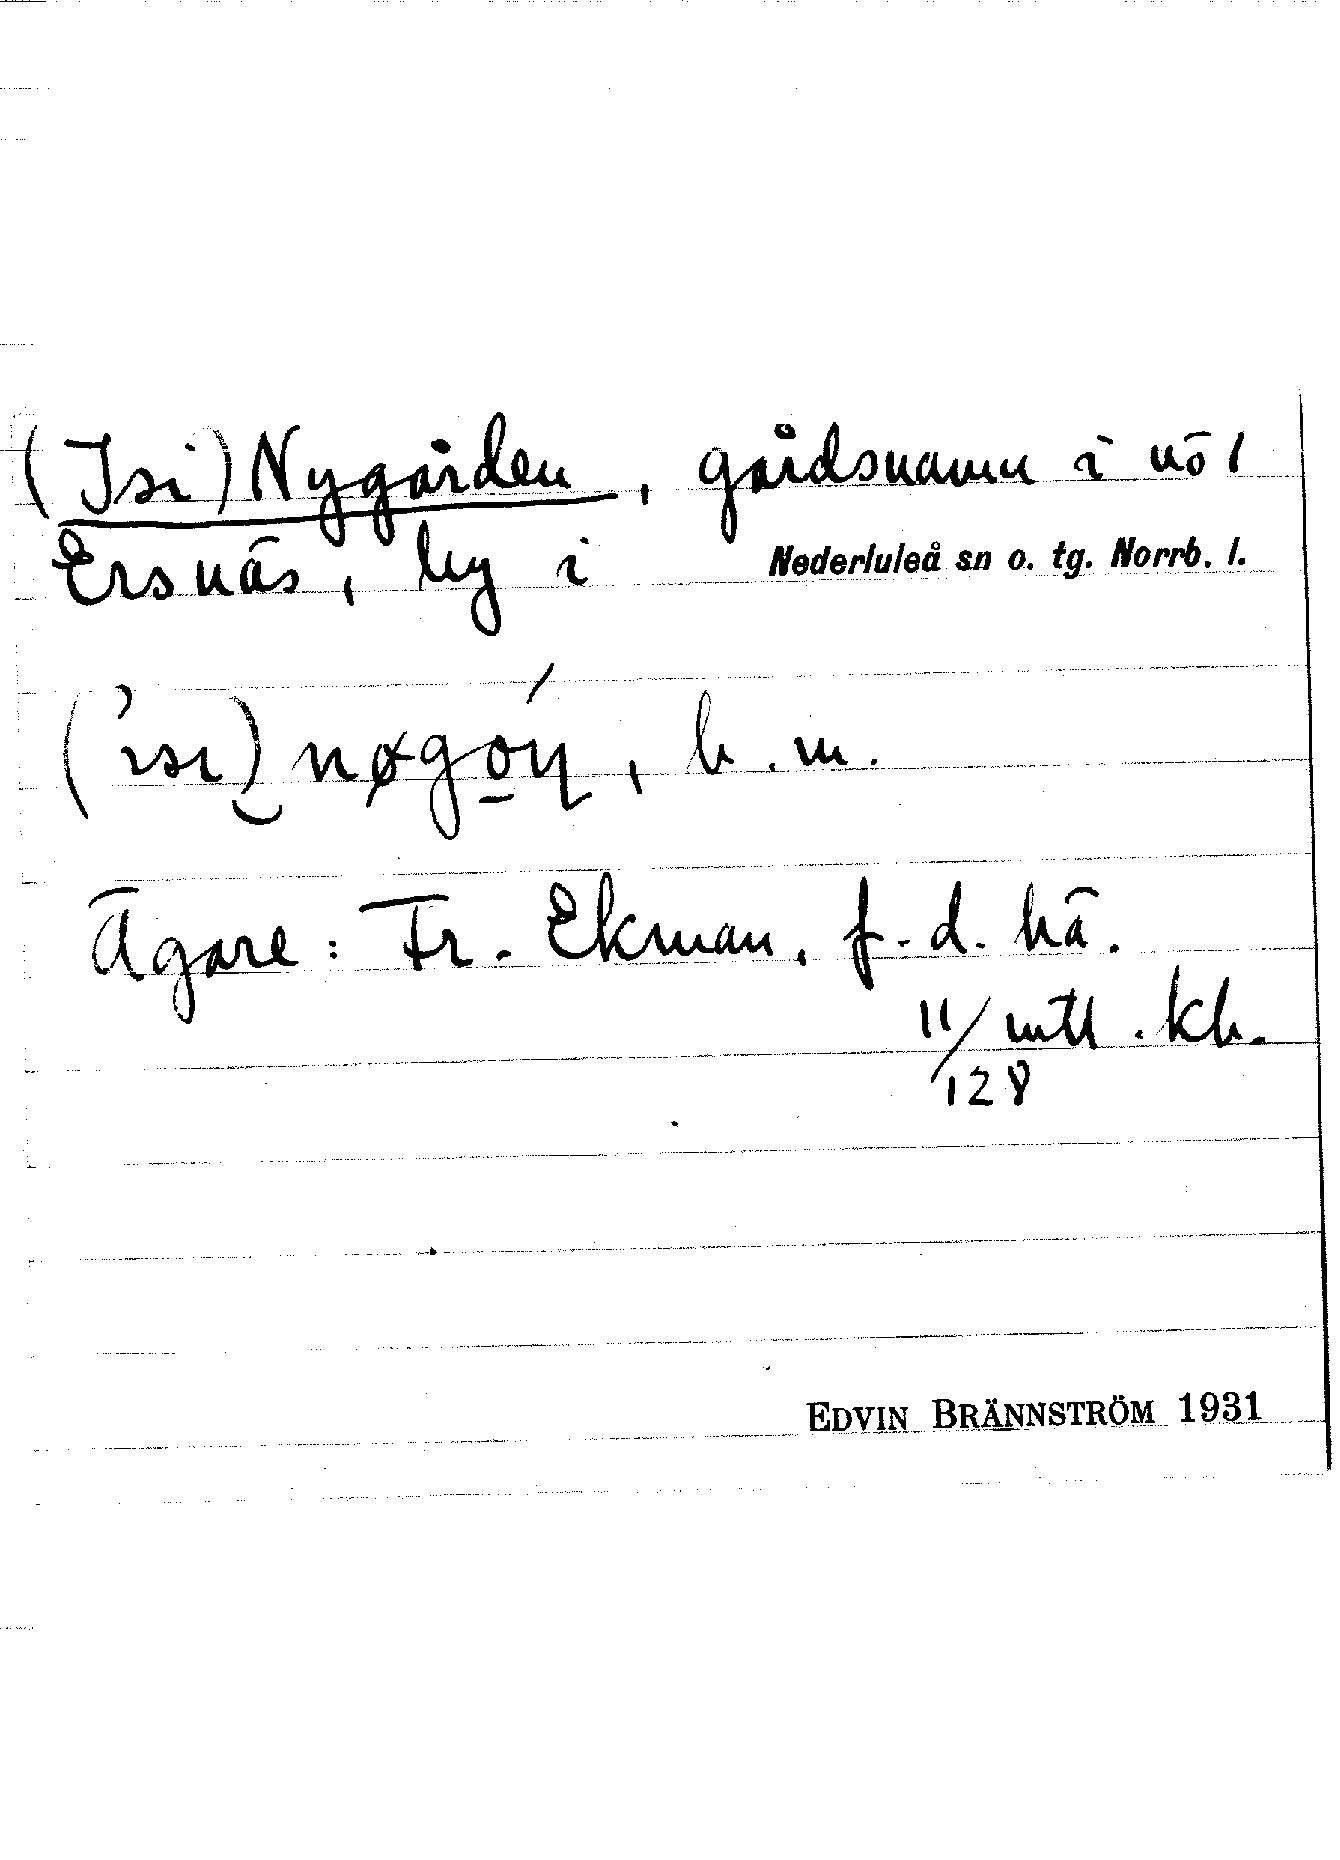 (Isi) Nygården, gårdsnamn i nö l
Ersnäs, by i Nederluleå sn o. tg. Norrb. l.
b. m.
Ägare: Fr. Ekman, f. d. hä.
11/128 mtl. kh.
EDVIN BRÄNNSTRÖM 1931